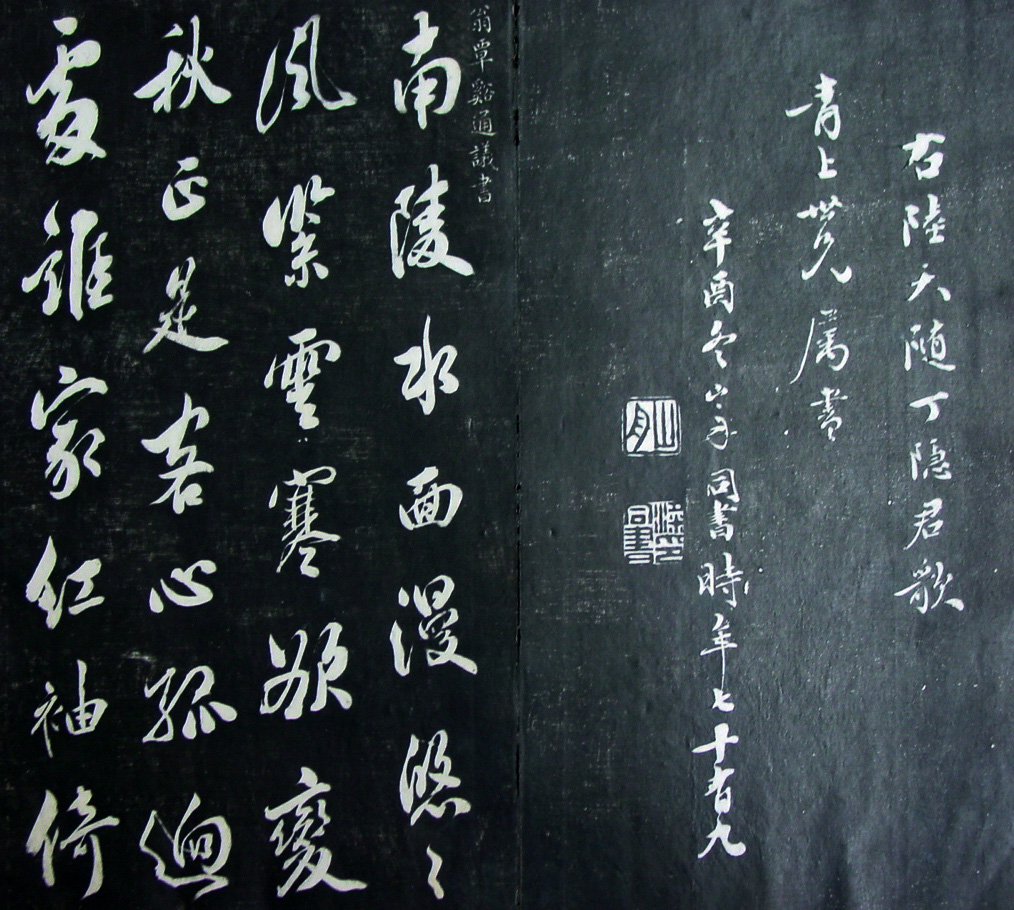 右陸天隨丁隱君歌
青上世兄屬書
辛酉冬山舟同書時年七十有九
山舟
翁覃谿通議書
南陵水面漫悠〻
風緊雲寒欲變
秋正是客心孤迥
處誰家紅袖倚